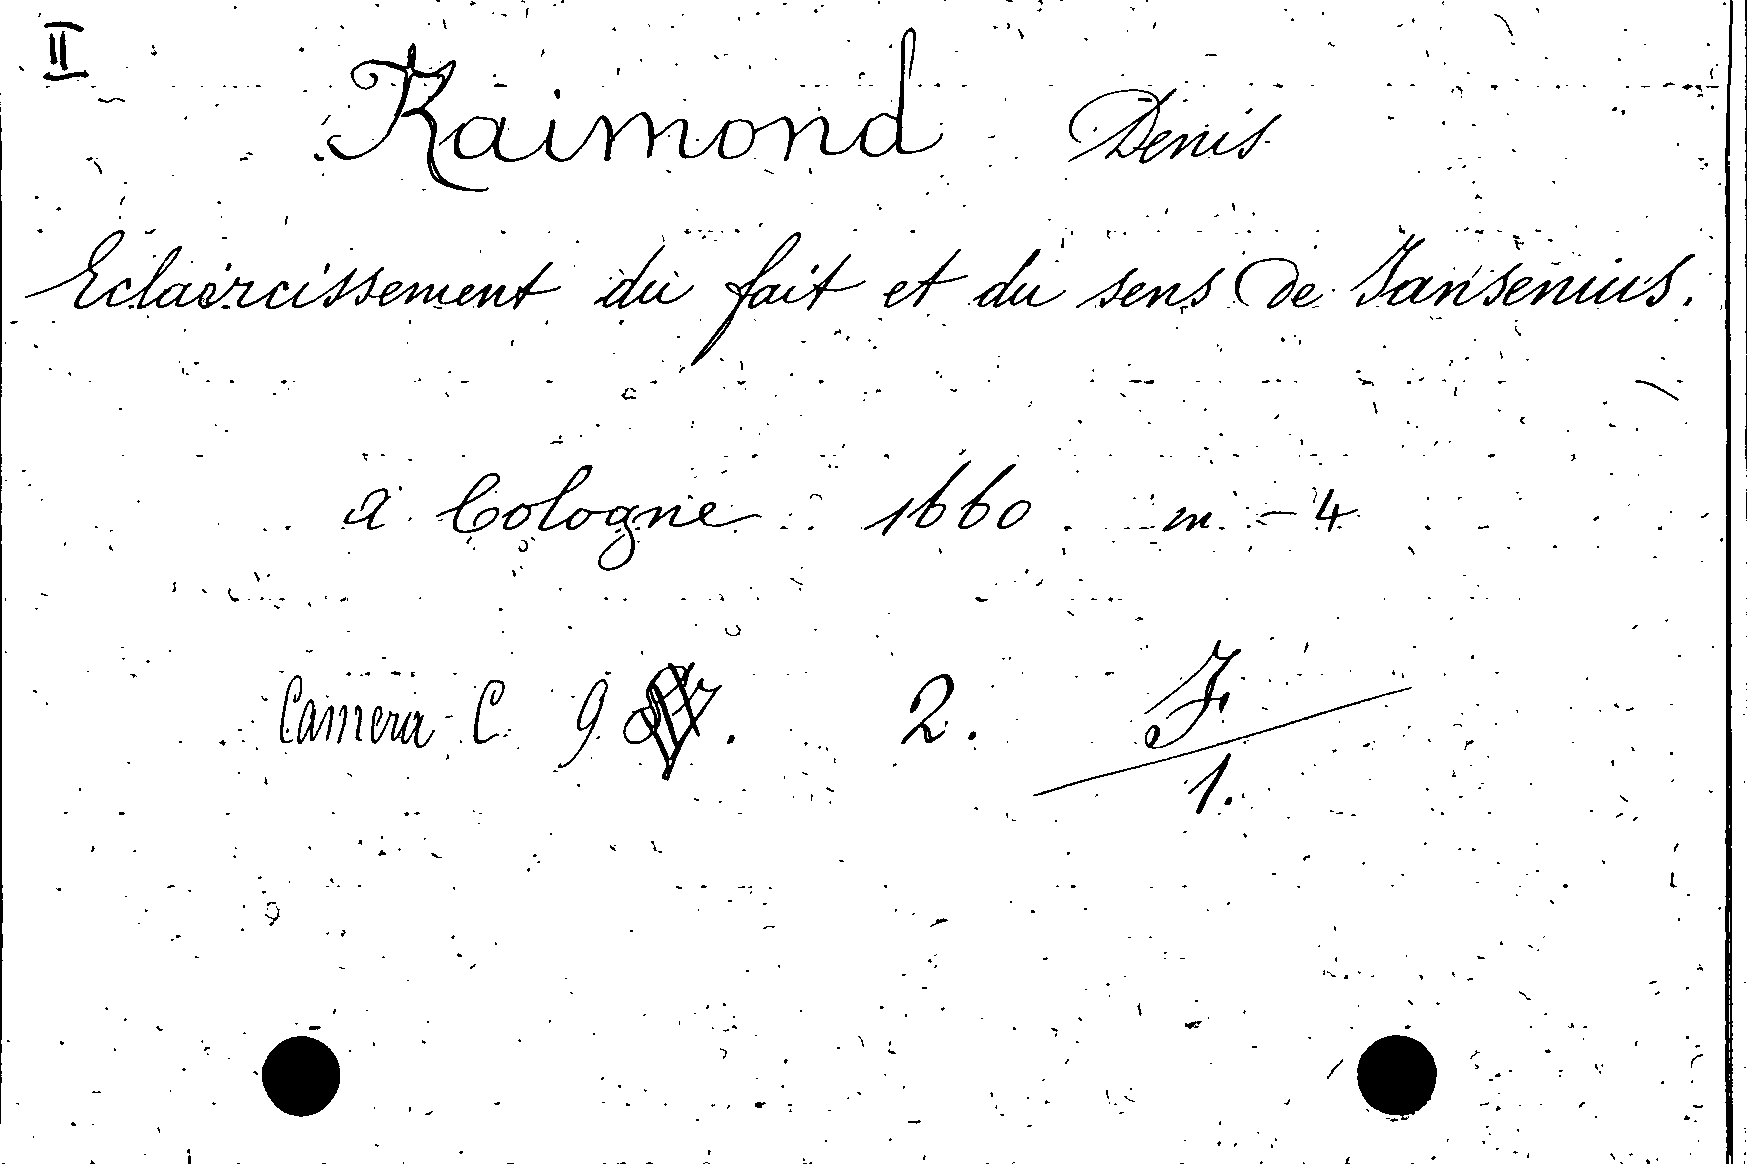 II
Raimond Denis
Eclaircissement du fait et du sens de Jansenius.
a Cologne 1660 m - 4
Camera C 9 . 2. F
1.